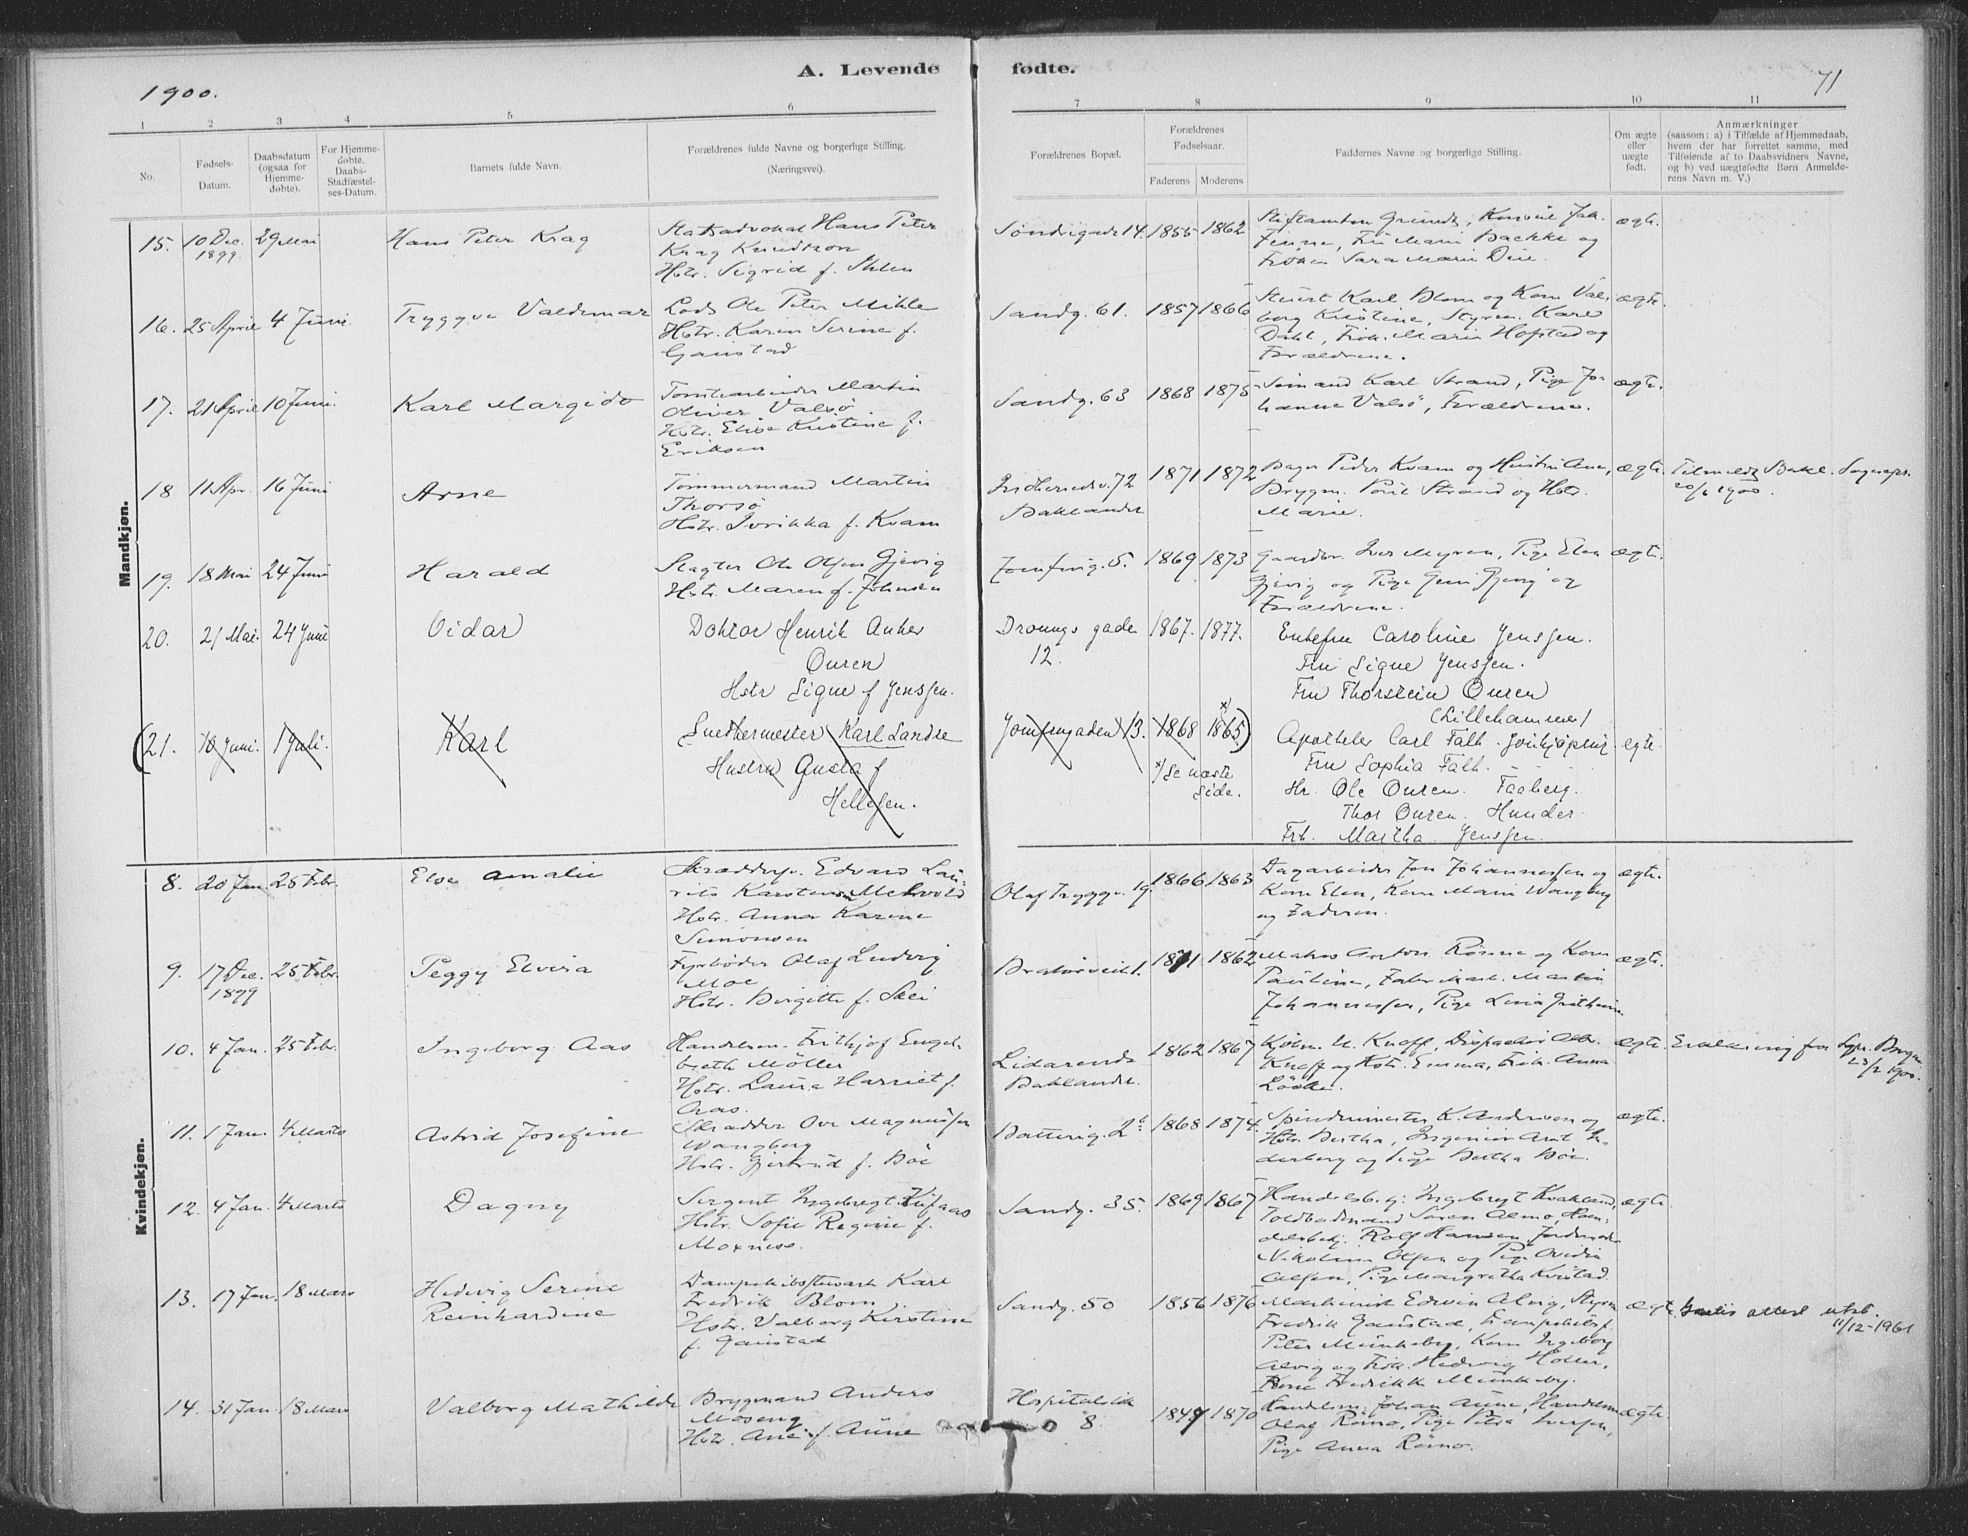 1900.
A. Levende fødte.
71
1 2 3 4 5 6 7 8 9 10 11
No.
Fødsels-Datum.
Daabsdatum (ogsaa for Hjemmedøbte).
For Hjemmedøbte. Daabs-Stadfæstelses-Datum.
Barnets fulde Navn.
Forældrenes fulde Navne og borgerlige Stilling. (Næringsvei).
Forældrenes Bopæl.
Forældrenes Fødselsaar.
Faderens Moderens
Faddernes Navne og borgerlige Stilling.
Om ægte eller uægte født.
Anmærkninger
(saasom: a) i Tilfælde af Hjemmedaab, hvem der har forrettet samme, med Tilføiende af to Daabsvidners Navne, og b) ved uægtefødte Børn Anmelderens Navn m. V.)
Mandkjøn.
15. 10 Dec. 1899. 29 Mai Hans Peter Krag
Statsadvokat Hans Peter
Krag Knudtzon
Hstr. Sigrid f.
Søndregade 14. 1855 1862
Stiftamtm. Grundt,
Finne, Fru Marie Backke og
Frøken Sara Marie Due.
ægte.
16. 25 April 4 Juni. Tryggve Valdemar
Lods Ole Peter Mihle
Hstr. Karen Serine f.
Ganstad
Sandg. 61. 1857 1866
Stuert Karl Blom og Kone Valborg Kristine, Styrm. Karl
Dahl, Frøk. Marie Hofstad og
Forældrene.
ægte.
17. 21 April 10 Juni. Karl Margido
Tomtearbeider Martin
Oliver Valsø.
Hstr. Elise Kristine f.
Eriksen
Sandg. 63 1868 1875
Sømand Karl Strand, Pige Johanne Valsø, Forældrene.
ægte.
18 11 Apr. 16 Juni Arne
Tømmermand Martin
Thorsø
Hstr. f. Kvam
Indherredsv. 72
Baklandet
1871 1872
Bager Peder Kvam og Hustru Ane,
Brygm. Strand og Hstr.
Marie.
ægte.
Tilmeldt Bakl. Sognepr.
20/6 1900.
19. 18 Mai 24 Juni Harald
Slagter Ole Olsen Gjevig
Hstr. Maren f. Johnsen
Jomfrug. 5. 1869 1873
Gaardbr. Iver Myran, Pige Elen
Gjevig og Pige Gjevig og
Forældrene.
ægte.
20. 21 Mai. 24 Juni Vidar
Doktor Henrik Anker
Ouren
Hstr Signe f Jenssen.
Dronnings gade
12.
1867. 1877.
Enkefru Caroline Jenssen.
Fru Signe Jenssen.
Fru Thorstein Ouren
(Lillehammer)
(21. 10 Juni. 1 Juli. Karl
Snedkermester Karl Sandse
Hustru Gusta f
Hellesen.
Jomfrugaden 13. 1868 1865)
x) Se næste
Side.
Apotheker Carl Falk. Jönkjøping
Fru Sophia Falk.
Hr. Ole Ouren. Faaberg.
Thor Ouren. Hunder.
Frk. Martha Jenssen.
egte.
Kvindekjøn.
8. 20 Jan. 25 Febr. Else Amalie
Skrædders. Edvard Laurits Karstensen Melvold
Hstr. Anna Karine
Simonsen
Olaf Tryggv. 19. 1866 1863
Dagarbeider Jon Johannessen og
Kone Elen, Kone Marie Wangberg
og Faderen.
ægte.
9. 17 Dec. 1899 25 Febr. Peggy Elvira
Fyrbøder Olaf Ludvig
Moe
Hstr. Birgitte f.
Bratørveit 1. 1871 1862
Anton Rønne og Kone
Pauline, Fabrikarb. Martin
Johannessen, Pige Lina
ægte.
10. 4 Jan. 25 Febr. Ingeborg Aas
Handelsm. Frithjof Engelbreth Møller
Hstr. Laura Harriet f.
Aas.
Lidarende
Baklandet.
1862 1867
Kjøbm. U. Knoff, Dispachør
Knoff og Hstr. Emma, Frøk. Anna
ægte.
Erklæring fra Sgpr.
23/2 1900.
11. 1 Jan. 4 Marts Astrid Josefine
Skrædder Ove Magnussen
Wangberg
Hstr. Gjertrud f. Bøe
Batterig. 2b 1868 1874.
Spindemester K. Andersen og
Hstr. Bertha, Ingeniør Arnt og Pige Bertha Bøe.
ægte.
12. 4 Jan. 4 Marts Dagny
Sergent Ingebregt
Hstr. Sofie Regine f.
Moxness.
Sandg. 35. 1869 1867
Handelsb.g: Ingebregt
Toldbadmand Søren Almo, Handelsbetj. Rolf Hansen, Jordemoder
Nikoline Olsen og Pige Ovidia
Olsen, Pige Margrethe Kvistad.
ægte.
13. 17 Jan. 18 Marts Hedvig Serine
Reinhardine
Dampskibsstewart Karl
Fredrik Blom.
Hstr. Valborg Kirstine
f. Ganstad
Sandg. 50 1856 1876
Maskinist Edvin Alvig, Styrm
Fredrik Ganstad, Dampskibsf.
Peter Munkeby, Kone Ingeborg
Alvig og Frøk. Hedvig Holler,
Kone Fredrikke Munkeby.
ægte.
Gratis attest utst.
11/12-1961
14. 31 Jan. 18 Mars Valborg Mathilde
Brygmand Anders
Moseng
Hstr. Ane f. Aune
Hospitalslk
8.
1849 1870
Handelsm. Johan Aune, Handelsm
Olaf Rømo, Pige Petra Iversen,
Pige Anna Rømo.
ægte.